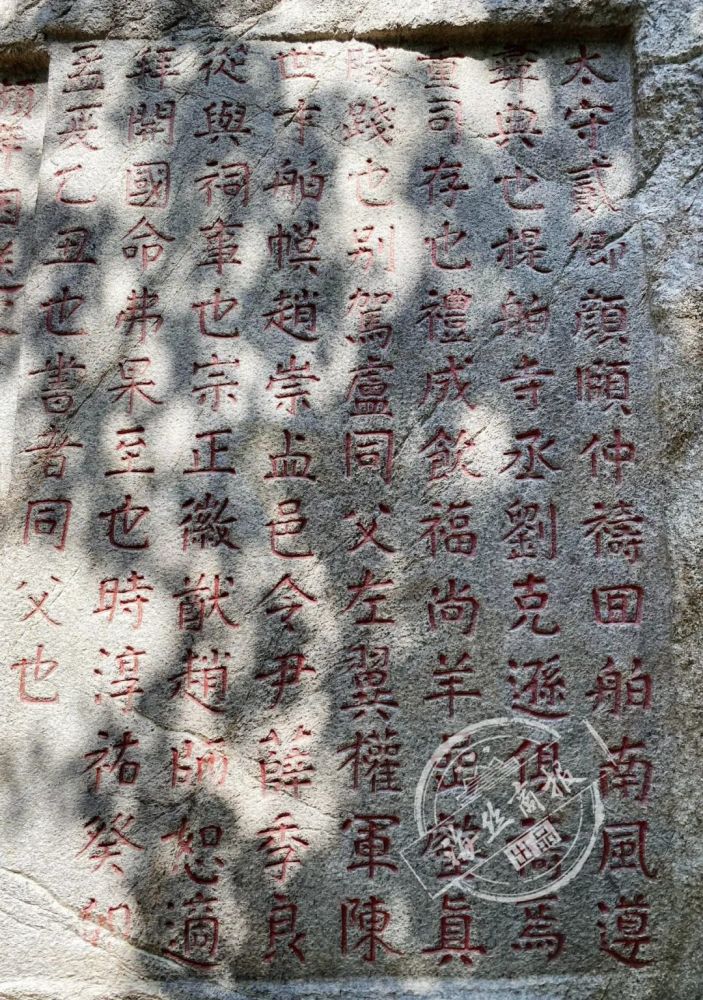 太守貳卿顔頤仲禱回舶南風遵
彝典也提舶寺丞劉克遜俱禱焉
重司存也禮成飲福尚羊壑眞
勝踐也别駕盧同父左翼權軍陳
世才舶幙趙崇盅邑令尹薛季良
從與祠事也宗正徽猷趙師恕適
拜開國命弗果至也時淳祐癸卯
孟夏乙丑也書者同父也
海丝商报